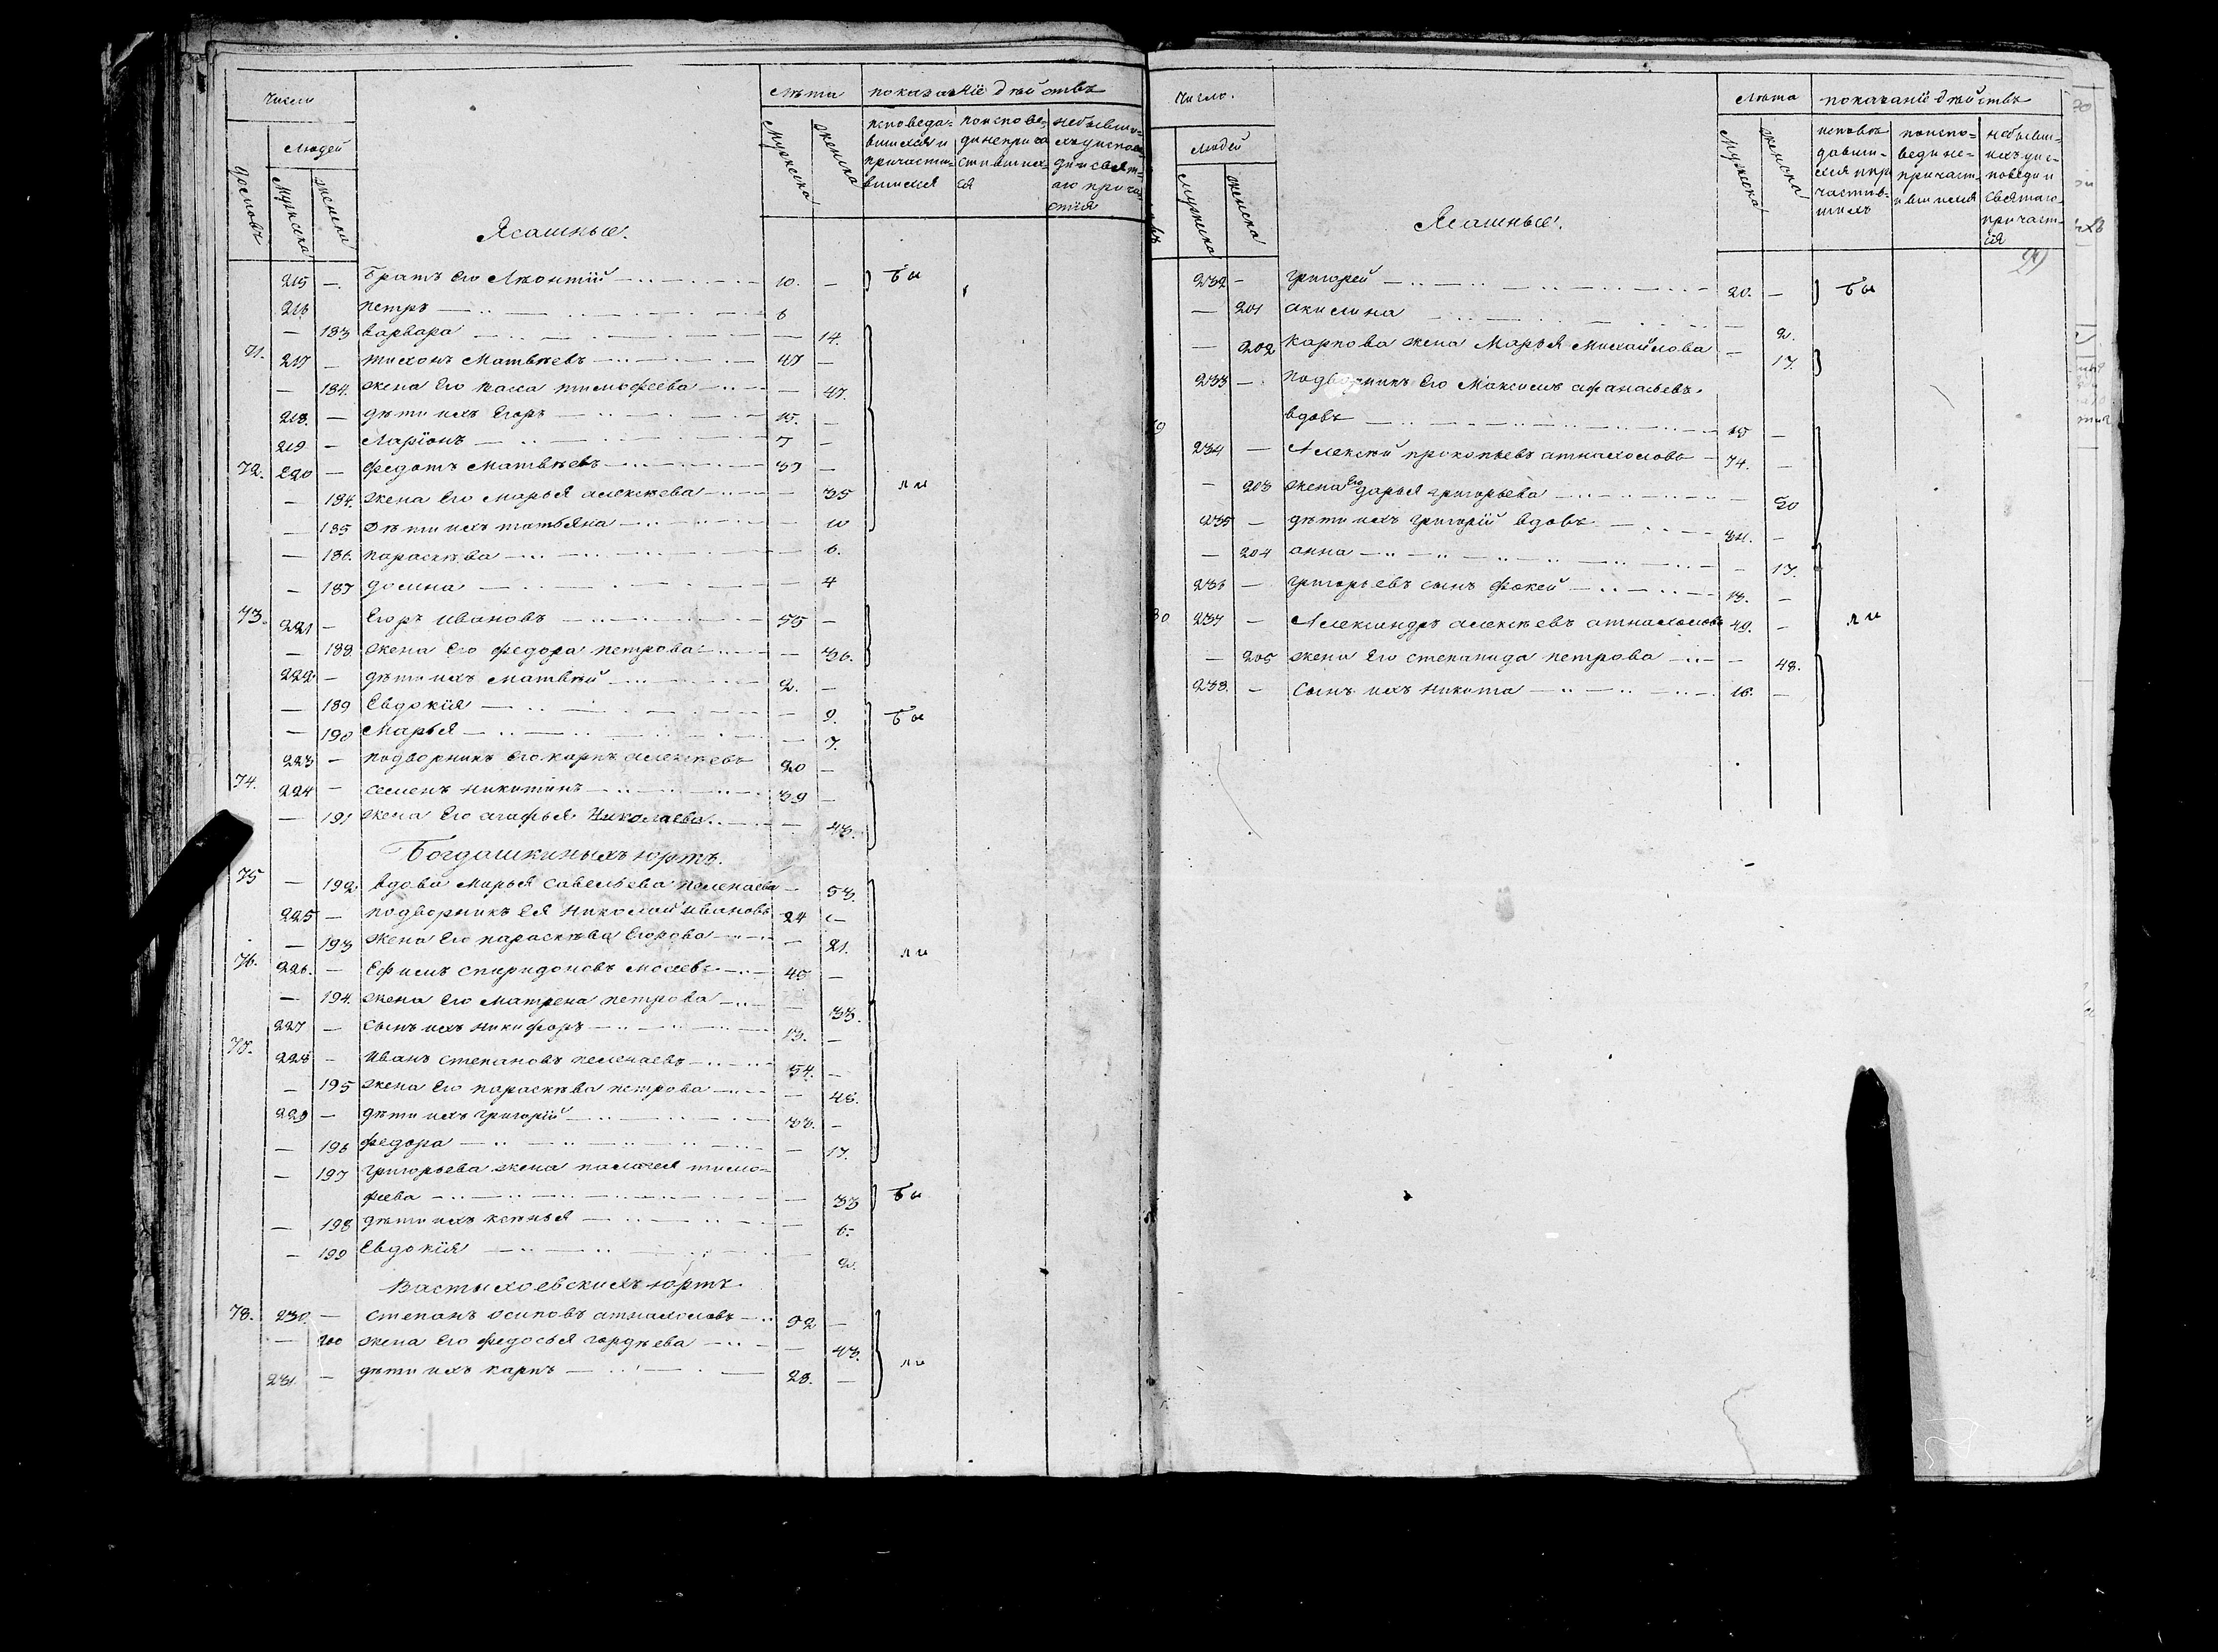 Число
лѣта показаніе дѣйствъ
людей
дворовъ мужеска женска
мужеска женска
исповеда-
вшихся и
причасти-
вшихся
по испове-
ди не прича
стивших-
ся
небывши-
хъ у испове
ди и свят-
аго прича
стия
Ясашные.
215 — братъ его Леонтій 10. — } бы
216 петръ 6
— 183 варвара — 14.
71. 217 — тихонъ Матвѣевъ 47 —
— 184. жена его тимофеева — 47.
218. — дѣти ихъ Егоръ 15. —
219 — Ларіонъ 7 —
72. 220 — федотъ Матвѣевъ 37 —
— 184. жена его Марья алексѣева — 35 ли
— 185 дѣти ихъ татьяна — 10
— 186. параскѣва — 6.
— 187 домна — 4
73. 221 — Егоръ ивановъ 55 —
— 188 жена его федора петрова — 36.
222 — дѣти ихъ матвѣй 2. —
— 189 Евдокія — 9.
— 190 Марья — 7. бы
223 — подворникъ его карпъ алексѣевъ 20 —
74. 224 — семенъ никитинъ 39 —
— 191 жена его агафья Николаева — 43.
Богдашкиныхъ юртъ.
75 — 192 вдова марья савельева — 53.
225 — подворникъ ея николай ивановъ 24 —
— 193 жена его параскѣва Егорова — 21.
76. 226. — Ефимъ спиридоновъ 40 — ли
— 194. жена его матрена петрова — 33.
227 — сынъ ихъ никифоръ 13. —
77. 228 — иванъ степановъ 54. —
— 195 жена его параскѣва петрова — 45.
229 — дѣти ихъ григорій 33. —
— 196 федора — 17.
— 197 григорьева жена палагея тимо-
феева — 33 } бы
— 198 дѣти ихъ ксенья — 6.
— 199 Евдокія — 2.
юртъ
78. 230. — степанъ осиповъ атнахоловъ 52 —
— 200 жена его федосья гордѣева — 43.
231. — дѣти ихъ карпъ 23. — ли
Число.
лѣта показаніе дѣйствъ
людей
мужеска женска
мужеска женска
исповѣ
давши-
хся и при
частив-
шихъ
по испо-
веди не-
причаст-
ившихся
небывш-
ихъ у ис-
поведи и
святаго
причаст-
ія
Ясашные.
232 — григорей 20. — } бы
— 201 акилина — 2.
— 202 карпова жена Марья Михайлова — 17. }
233 — подворникъ его Максимъ афанасьевъ
вдовъ —
234 — Алексѣй прокопьевъ атнахоловъ 74. —
— 203 жена его дарья григорьева — 50
235 — дѣти ихъ григорій вдовъ 34. —
— 204 анна — 17.
236 — григорьевъ сынъ фокей 13. —
80 237 — Александръ алексѣевъ атнахоловъ 49. — ли
— 205 жена его степанида петрова — 48.
238. — сынъ ихъ никита 16. —